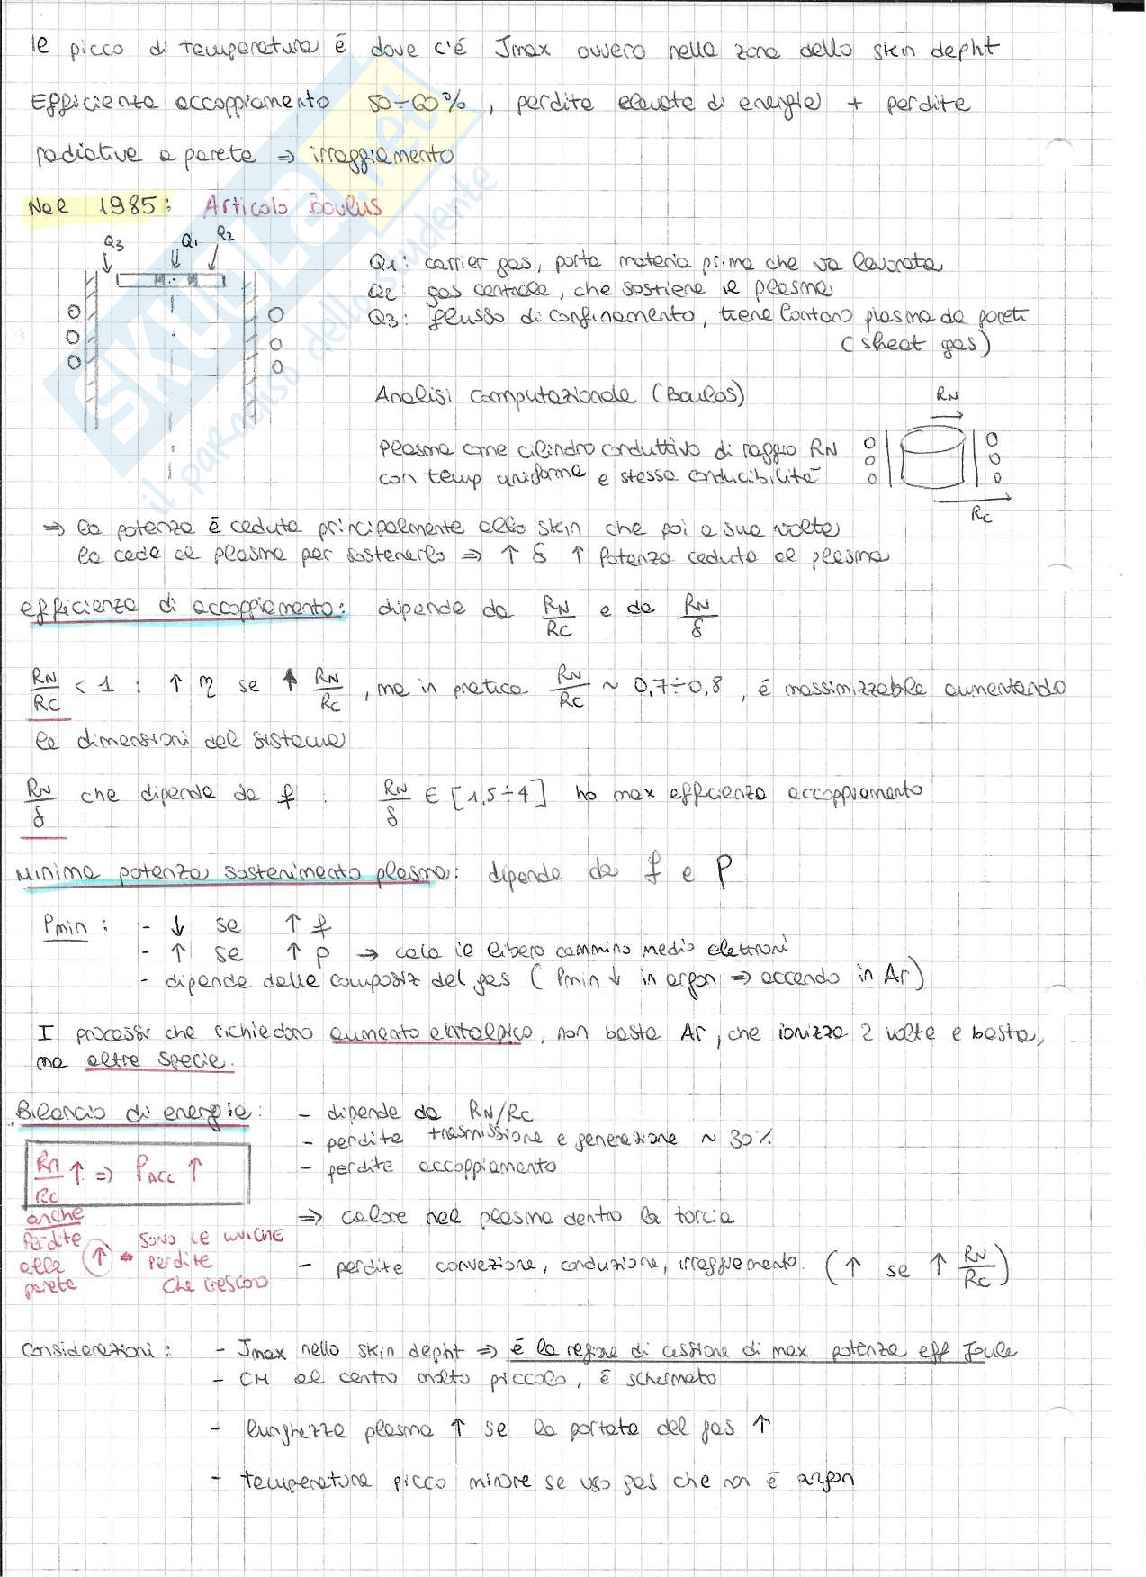 Il picco di temperatura è dove c'è Jmax ovvero nella zona dello skin depht
Efficienza accoppiamento 50÷60%, perdite elevate di energia + perdite
radiative a parete ⇒ irraggiamento
Nel 1985: Articolo Boulus
Q3 Q1 Q2
Q1: carrier gas, porta materia prima che va lavorata
Q2: gas centrale, che sostiene il plasma
Q3: flusso di confinamento, tiene lontano plasma da pareti
(sheat gas)
Analisi computazionale (Boulos)
RN
Plasma come cilindro conduttivo di raggio RN
con temp uniforme e stessa conducibilità
RC
⇒ la potenza è ceduta principalmente allo skin che poi a sua volta
la cede al plasma per sostenerlo ⇒ ↑ δ ↑ potenza ceduta al plasma
efficienza di accoppiamento: dipende da RN/RC e da RN/δ
RN/RC < 1 : ↑ η se ↑ RN/RC, ma in pratica RN/RC ~ 0,7÷0,8, è massimizzabile aumentando
le dimensioni del sistema
RN/δ che dipende da f : RN/δ ∈ [1,5÷4] ho max efficienza accoppiamento
Minima potenza sostenimento plasma: dipende da f e P
Pmin : - ↓ se ↑ f
- ↑ se ↑ p → cala il libero cammino medio elettroni
- dipende dalla composiz del gas (Pmin ↓ in argon ⇒ accendo in Ar)
I processi che richiedono aumento entalpico, non basta Ar, che ionizza 2 volte e basta,
ma altre specie.
Bilancio di energia: - dipende da RN/RC
- perdite trasmissione e generazione ~ 30%
- perdite accoppiamento
RN/RC ↑ ⇒ PACC ↑
⇒ calore nel plasma dentro la torcia
anche perdite alla parete ↑ sono le uniche perdite che crescono
- perdite convezione, conduzione, irraggiamento. (↑ se ↑ RN/RC)
Considerazioni: - Jmax nello skin depht ⇒ è la regione di cessione di max potenza eff Joule
- CM al centro molto piccolo, è schermato
- lunghezza plasma ↑ se la portata del gas ↑
- temperatura picco minore se uso gas che non è argon
SKUOLA.net
il paradiso dello studente